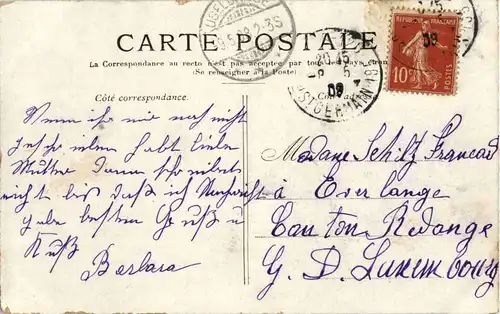 CARTE POSTALE
La Correspondance au recto n'est pas acceptée par tous les pays
(Se renseigner à la Poste)
Côté correspondance.
RÉPUBLIQUE FRANÇAISE
10
POSTES
ST GERMAIN
09
Wenn ihr mir noch nicht
habt liebe
Mutter dann schreibet
nicht bis daß ich Nachricht
gebe besten Gruß u
Kuß
Barbara
Madame Schiltz Francad
à Everlange
Canton Redange
G. D. Luxembourg